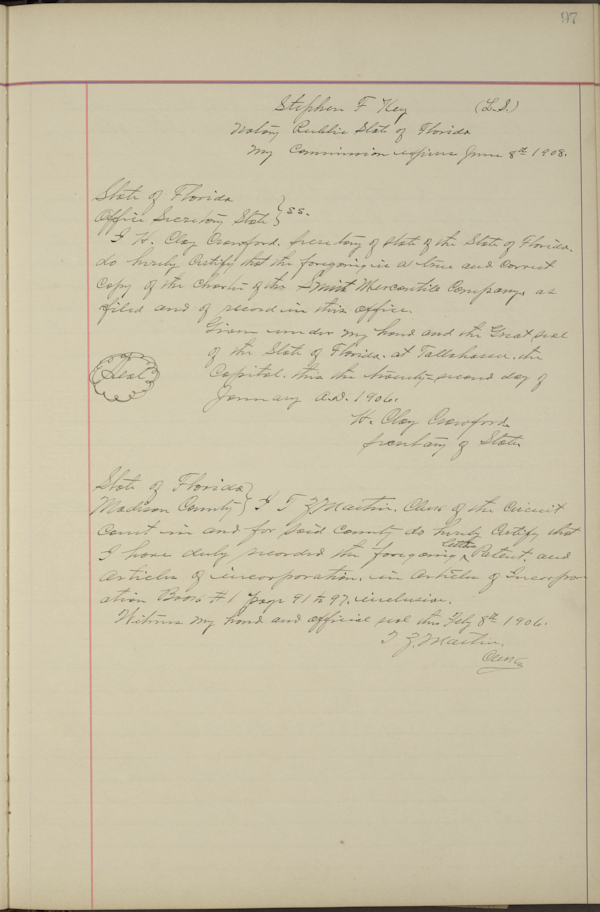 97
Stephen F Key (L.S.)
Notary Public State of Florida
My Commission expires June 8th 1908.
State of Florida
Office Secretary State } ss.
I H. Clay Crawford. Secretary of State of the State of Florida.
do hereby Certify that the foregoing is a true and correct
Copy of the Charter of the Smith Mercantile Company, as
filed and of record in this office.
Given under my hand and the Great seal
of the State of Florida. at Tallahassee. the
Capital. this the twenty-second day of
January A.D. 1906.
Seal
H. Clay Crawford.
Secretary of State
State of Florida
Madison County } I T Z Martin. Clerk of the Circuit
Court in and for said County do hereby Certify that
I have duly recorded the foregoing Letters Patent. and
Articles of incorporation. in Articles of Incorpor
ation Book #1 page 91 to 97. inclusive.
Witness my hand and official seal this Feby 8th 1906.
T Z. Martin.
Clerk